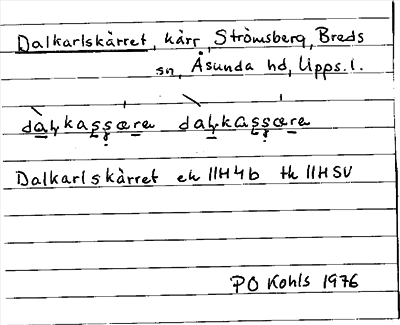 Dalkarlskärret, kärr, Strömsberg, Breds
sn, Åsunda hd, Upps. l.
Dalkarlskärret ek 11H4b tk 11HSV
PO Kohls 1976